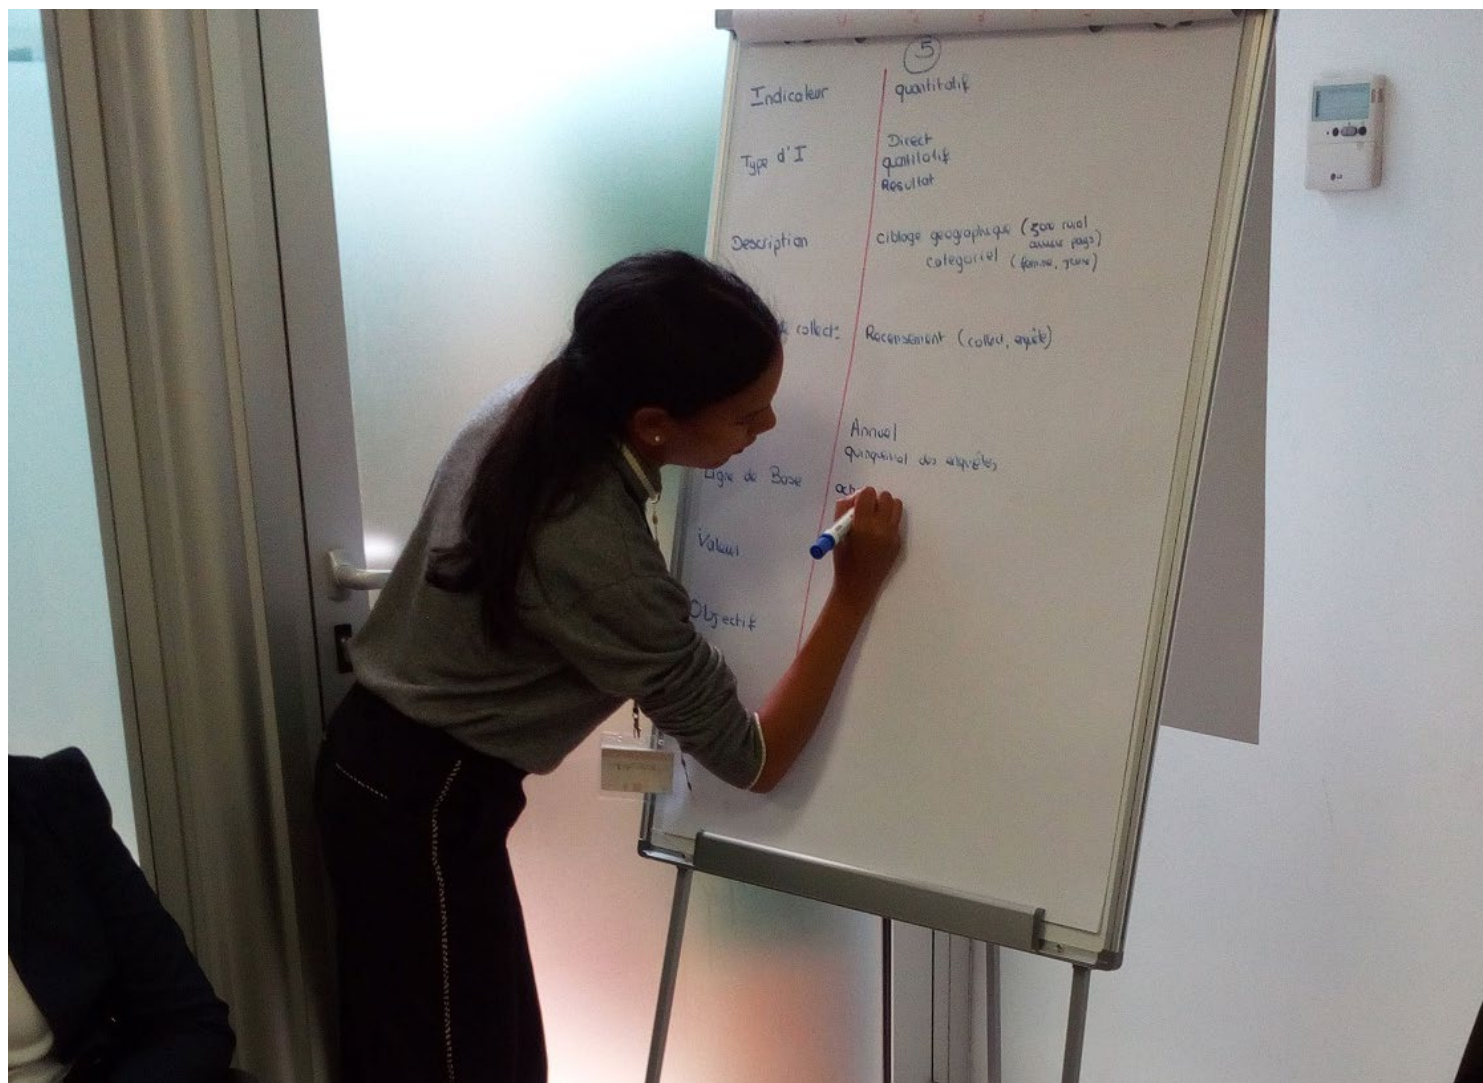 5
Indicateur quantitatif
Type d'I Direct
quantitatif
Resultat
Description ciblage geographique (zone rural
pays)
categoriel (femme, jeune)
de collect: Recensement (collect, enquête)
Annuel
quinquenal des enquêtes
Ligne de Base
Valeur
Objectif
LG